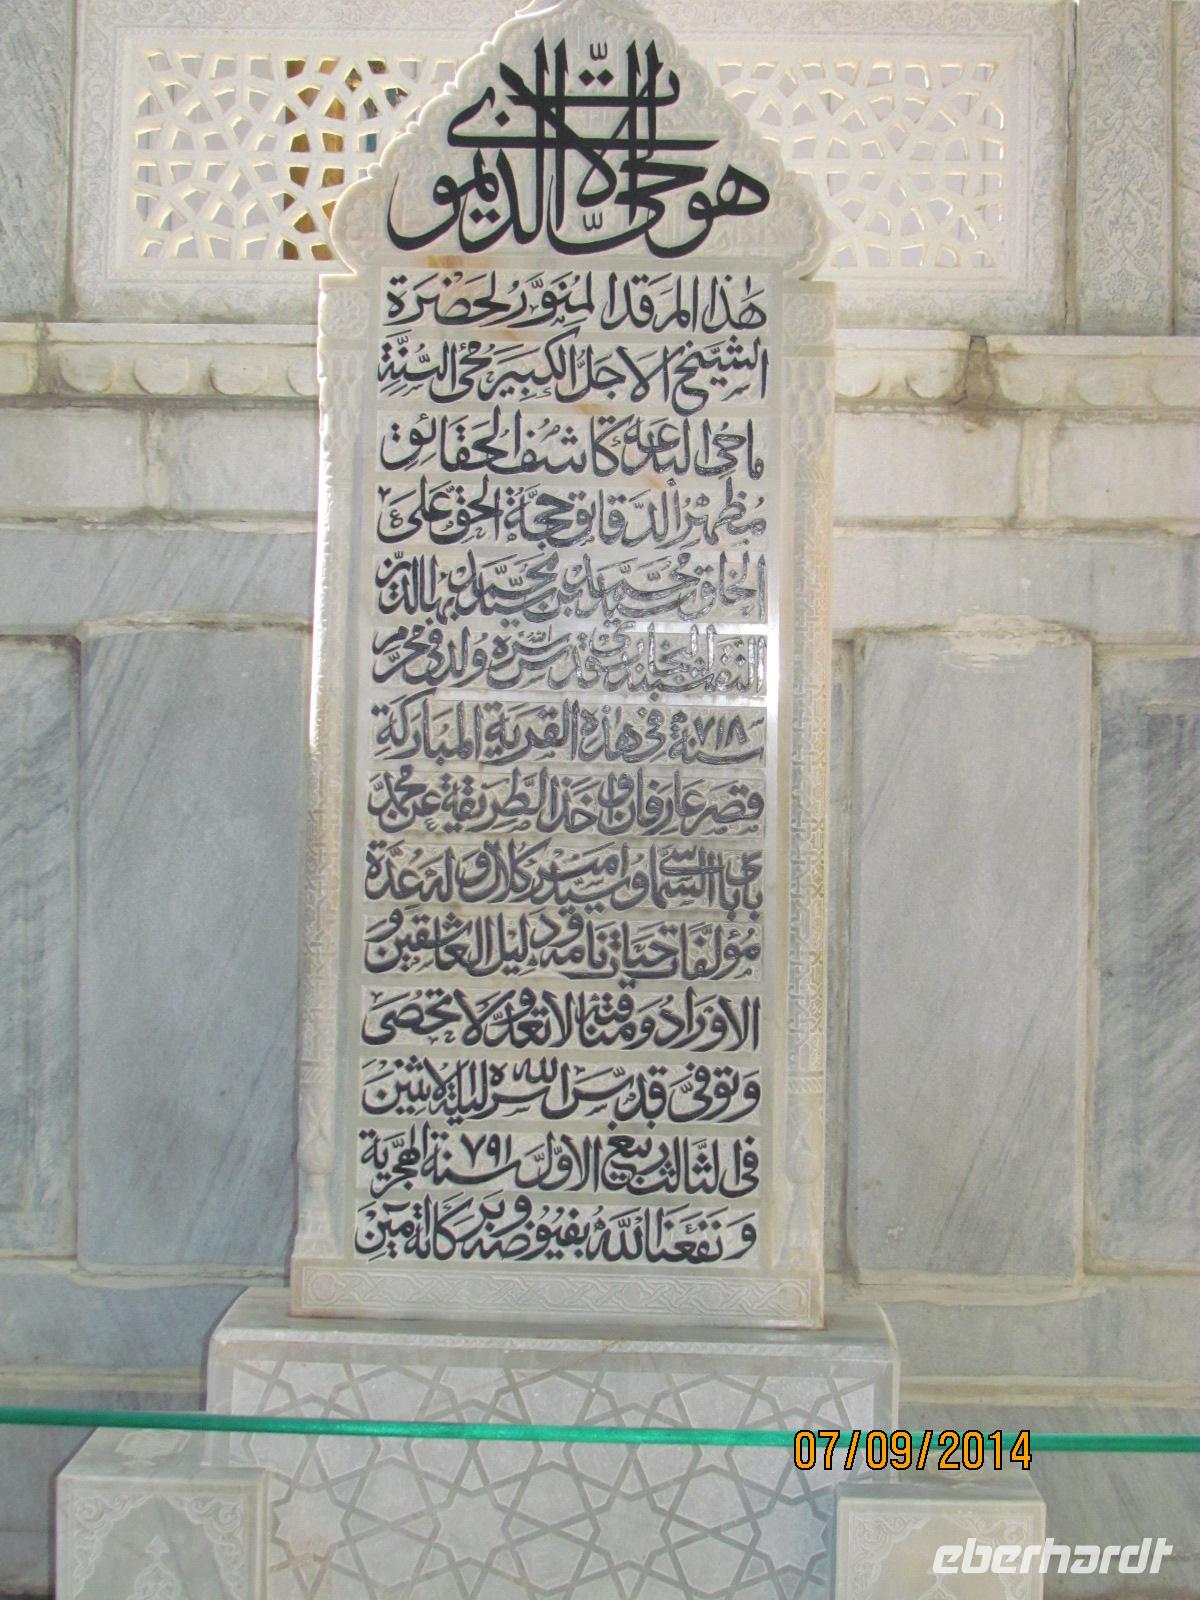 هو الحي الباقي الذي لا يموت
هَذا المرقد المُنَوَّرُ لِحَضرَة
الشيخ الاَجلُّ الكبير محي السُّنَّةِ
ماحي البدعة كاشف الحقائق
مُظهرُ الدَّقائق حجَّةُ الحقّ عَلى
الخلق سيّد محمّد بن سيّد محمّد بهاالدّين
النقشبندي البخاري قدس الله سره ولد في محرم
سنة ٧١٨ في هذه القرية المباركةِ
قصر عارفان واخذ الطّريقة عن محمّد
بابائ السّماسي وسيّد امير كلال وله عدَّة
مؤلفات حيات نامه ودليل العاشقين و
الاوراد ومناقبه لا تعدّ ولا تحصى
وتوفّي قدّس الله سره ليلة الاثنين
في الثالث ربيع الأوّل سنة ٧٩١ الهجريّة
ونَفَعَنا اللهُ بفيوضه وبركاته آمين
07/09/2014
eberhardt